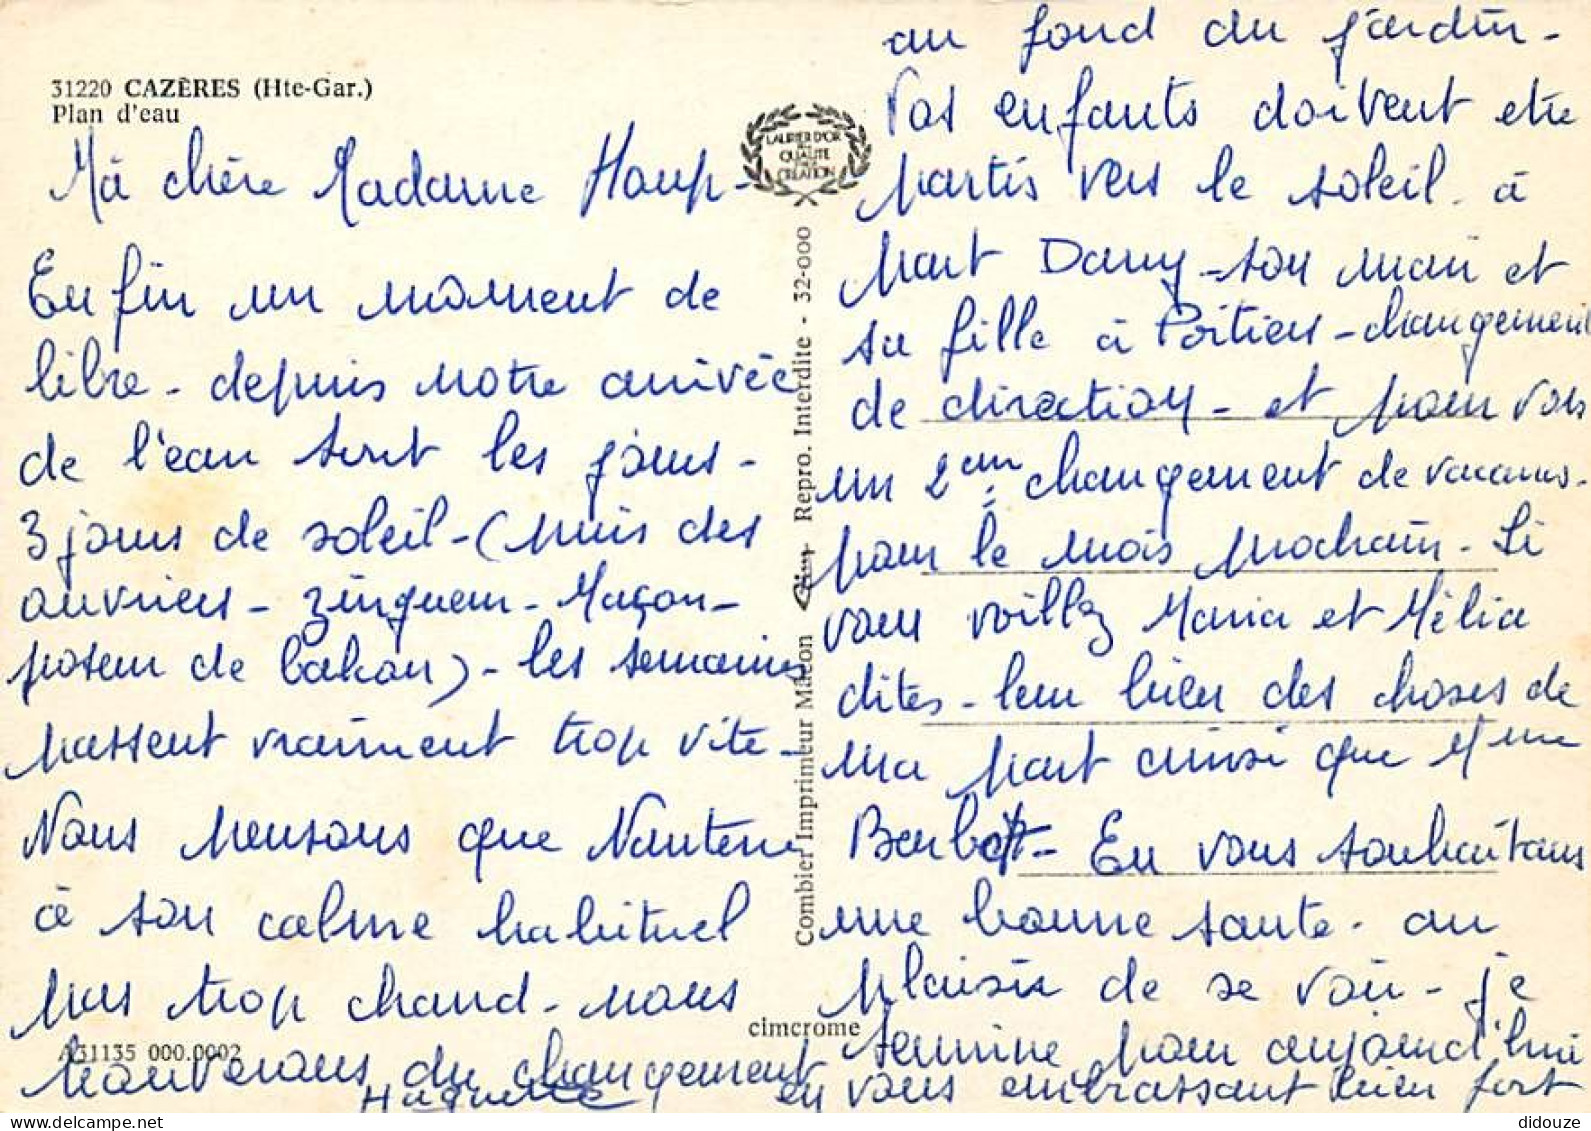 31220 CAZÈRES (Hte-Gar.)
Plan d'eau
Ma chère Madame Haup-
Enfin un moment de
libre - depuis notre arrivée
de l'eau tout les jours -
3 jours de soleil - (puis des
ouvriers - zingueur - Maçon -
poseur de balcon) - les semaines
passent vraiment trop vite -
Nous pensons que Nanterre
a son calme habituel
pas trop chaud - nous
trouverons du changement
au fond du jardin -
Vos enfants doivent etre
partis vers le soleil - à
part Dany - son mari et
sa fille à Poitiers - changement
de direction - et pour vous
un 2em changement de vacances -
pour le mois prochain - Si
vous voillez Maria et Mélia
dites - leur bien des choses de
ma part ainsi que Mme
Barbot - En vous souhaitans
une bonne sante - au
plaisir de se voir - je
termine pour aujourd'hui
en vous embrassant bien fort
Huguette
LAURIER D'OR
DE LA
QUALITE
CREATION
Combier Imprimeur Mâcon Cim Repro. Interdite - 32-000
cimcrome
A31135 000.0002
didouze